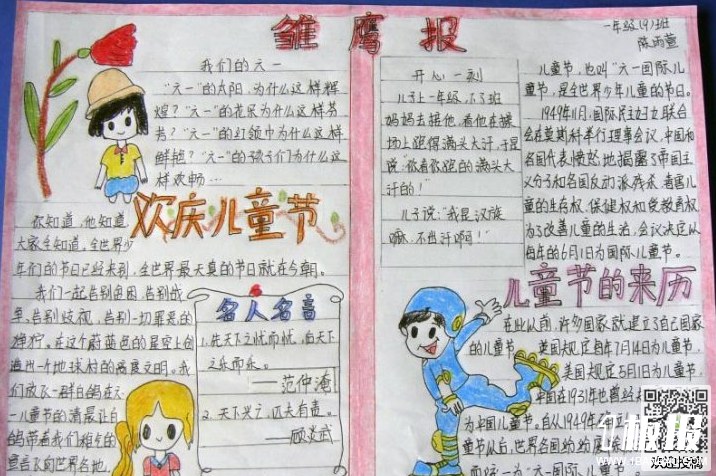 雏鹰报
一年级(9)班
陈雨萱
我们的六一
"六一"的太阳,为什么这样辉
煌?"六一"的花朵为什么这样芬
芳?"六一"的红领巾为什么这样
鲜艳?"六一"的孩子们为什么这
样欢畅…
欢庆儿童节
你知道,他知道,
大家全知道,全世界少
年们的节日已经来到,全世界最天真的节日就在今朝。
我们一起告别贫困,告别战
至,告别歧视,告别一切罪恶的
狰狞。在这个蔚蓝色的星空上创
造出一个地球村的高度文明。我
们放飞一群白鸽在六
一儿童节的清晨让白
鸽带着我们稚幼的
宣言飞向世界各地。
名人名言
1.先天下之忧而忧,后天下
之乐而乐。
——范仲淹
2.天下兴亡,匹夫有责。
——顾炎武
开心一刻
儿子上一年级,下了班
妈妈去接他,看他在操
场上跑得满头大汗,于是
说:"你看你跑的满头大
汗的!"
儿子说:"我是汉族
嘛,不出汗啊!"
儿童节,也叫"六一国际儿
童节,是全世界少年儿童的节日。
1949年11月,国际民主妇女联合
会在莫斯科举行理事会议,中国和
各国代表愤怒地揭露了帝国主
义分子和各国反动派残杀、毒害儿
童的生存权、保健权和受教育权,
为了改善儿童的生活,会议决定以
每年的6月1日为国际儿童节。
儿童节的来历
在此以前,许多国家就建立了自己国家
的儿童节,英国规定每年7月14日为儿童节,
美国规定5月1日为儿童节,
中国在1931年也曾经
为中国儿童节。自从1949年
童节以后,世界各国纷纷废